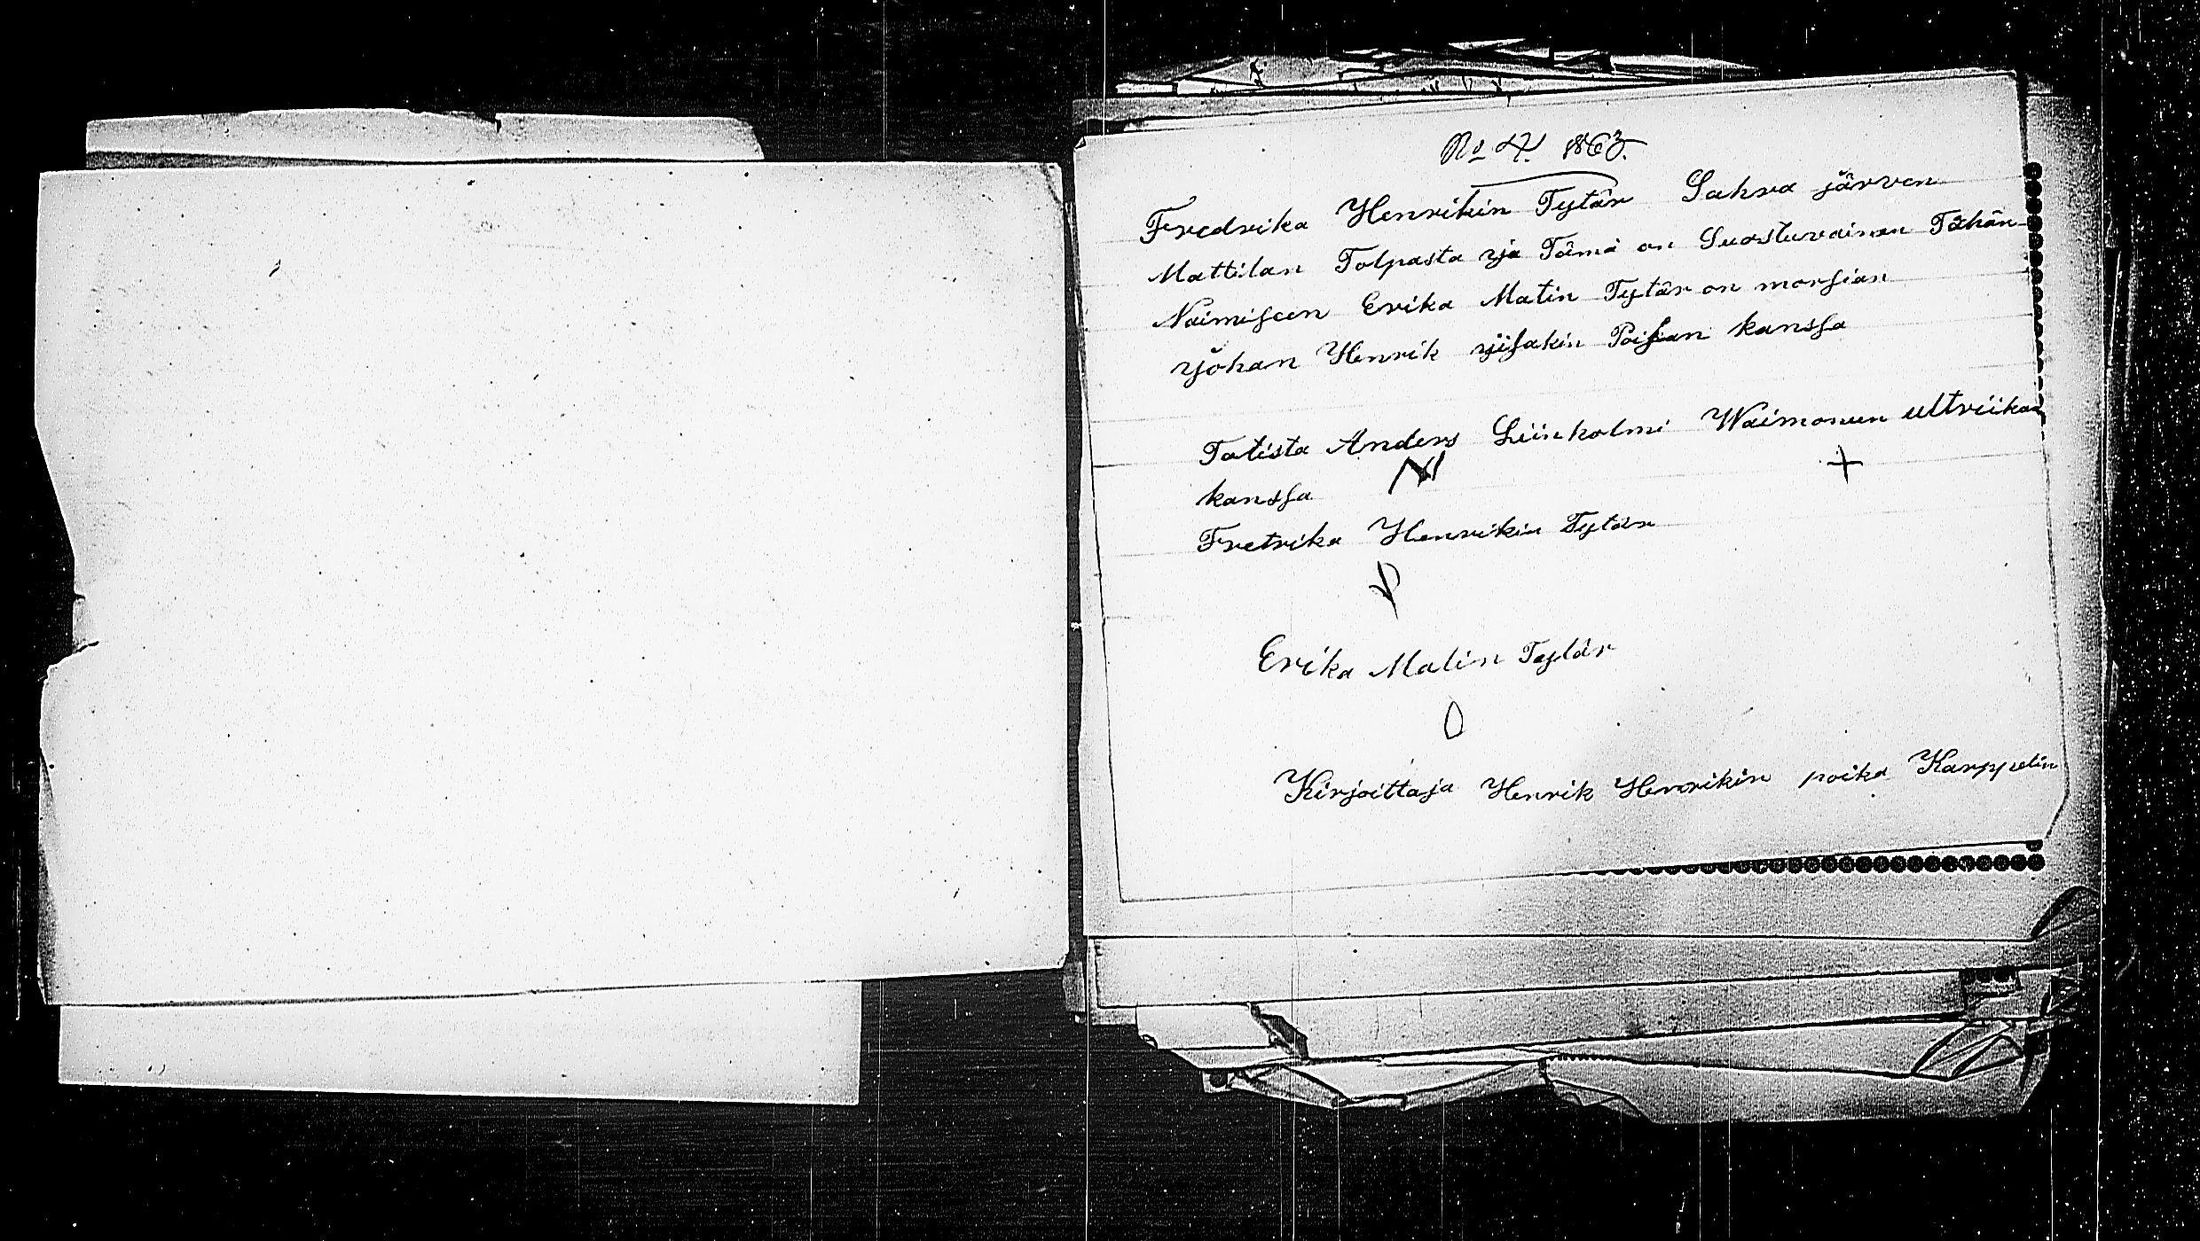 No 4. 1863.
Fredrika Henrikin Tytär Sahra järven
Mattilan Tolpasta ja Tämä on Suostuvainen Tähän
Naimiseen Erika Matin Tytär on morsian
johan Henrik jisakin Poisan kanssa
Totista Anders Liinholmi Waimonun ultriikan
kanssa
Fretrika Henrikin Tytär
Erika Matin Tytär
Kirjoittaja Henrik Henrikin poika Karppelin